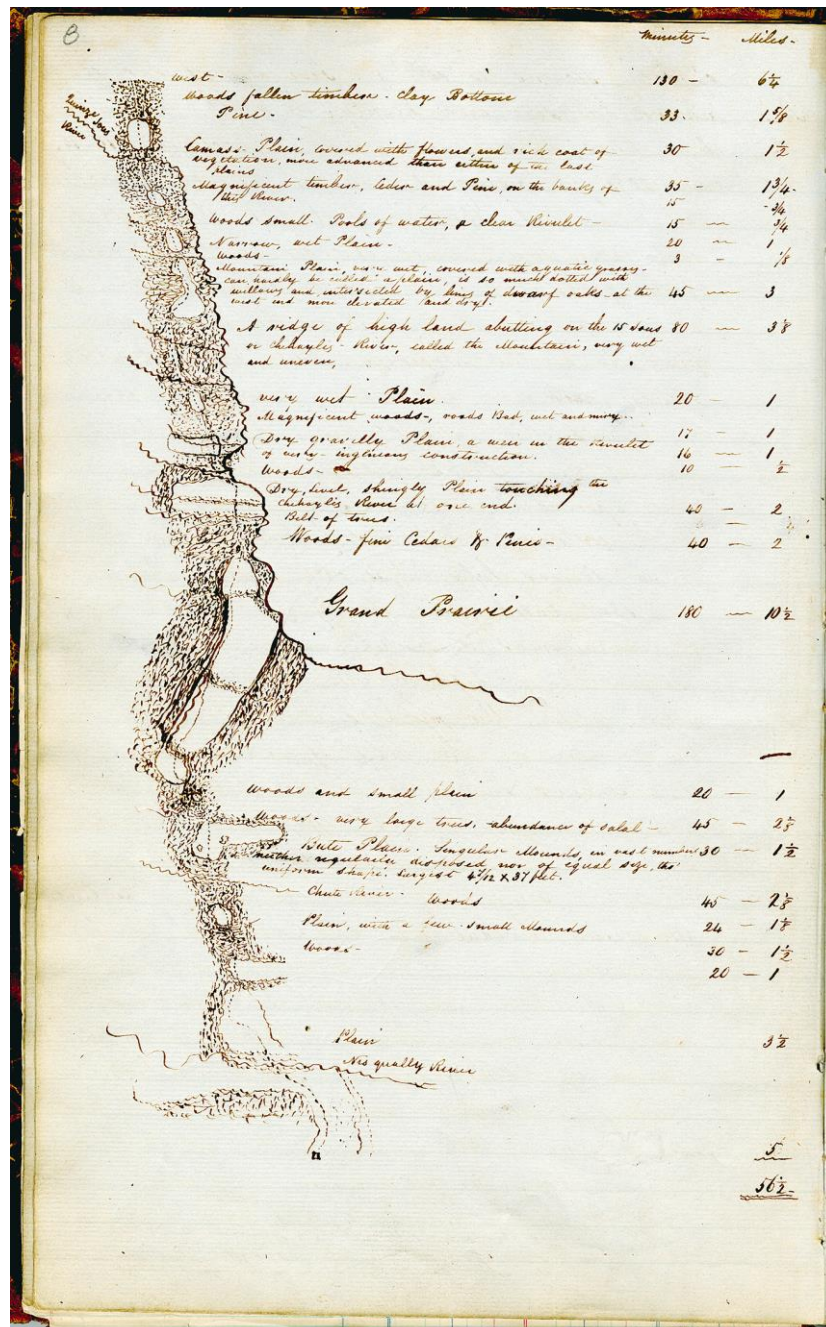 8
Minutes - Miles -
West - 130 - 6 1/4
Woods fallen timber - Clay Bottom
Pine - 33 - 1 5/8
Quinze Sous
River
Camass - Plain, covered with flowers, and rich coat of 30 1 1/2
vegetation, more advanced than either of the last
plains
Magnificent timber, Ceder and Pine, on the banks of 35 - 1 3/4 -
this River. 15 - 3/4
Woods small Pools of water, a clear Rivulet - 15 - 3/4
Narrow, wet Plain - 20 - 1
Woods - 3 - 1/8
Mountain Plain, very wet, covered with aquatic grasses -
can hardly be called a plain, is so much dotted with
willows and intersected by lines of dwarf oaks - at the 45 - 3
west end more elevated and dry.
A ridge of high land abutting on the 15 Sous 80 - 3
or Chehaylis - River, called the Mountain, very wet
and uneven,
very wet Plain. 20 - 1
Magnificent woods -, roads Bad, wet and miry.. 17 - 1
Dry gravelly Plain, a weir in the Rivulet
of very - ingenious construction. 16 - 1
Woods - 10 - 1/2
Dry, level, shingly Plain touching the
Chehaylis River at one end. 40 - 2
Belt of trees.
Woods - fine Cedars & Pines - 40 - 2
Grand Prairie 180 - 10 1/2
Woods and small plain 20 - 1
Woods - very large trees, abundance of salal - 45 - 2
Bute Plain. Singular Mounds, in vast number 30 - 1 1/2
neither regularly disposed nor of equal size, tho
uniform shape. Largest 4 7/12 x 37 feet.
Chute River - Woods 45 - 2
Plain, with a few small Mounds 24 - 1
Woods - 30 - 1 1/2
20 - 1
Plain 3 1/2
Nisqually River
5
56 1/2 -